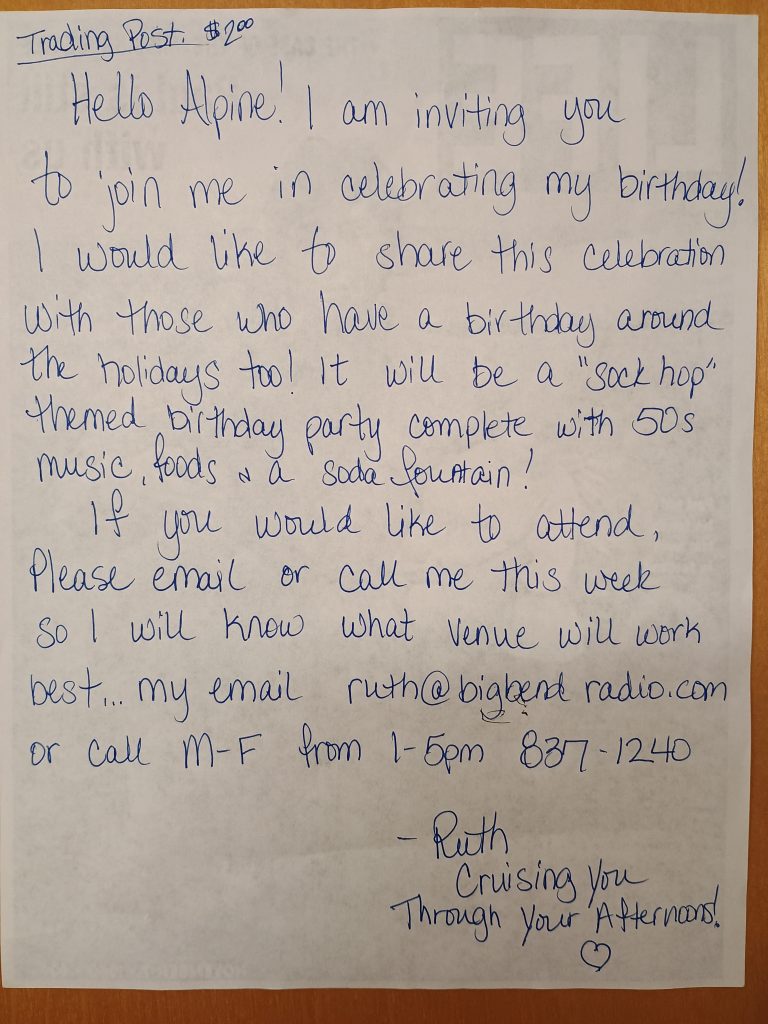 Trading Post. $2.00
Hello Alpine! I am inviting you
to join me in celebrating my birthday!
I would like to share this celebration
with those who have a birthday around
the holidays too! It will be a "sock hop"
themed birthday party complete with 50s
music, foods & a soda fountain!
If you would like to attend,
Please email or call me this week
so I will know what venue will work
best... my email ruth@bigbend radio.com
or call M-F from 1-5pm 837-1240
- Ruth
Cruising You
Through Your Afternoons!